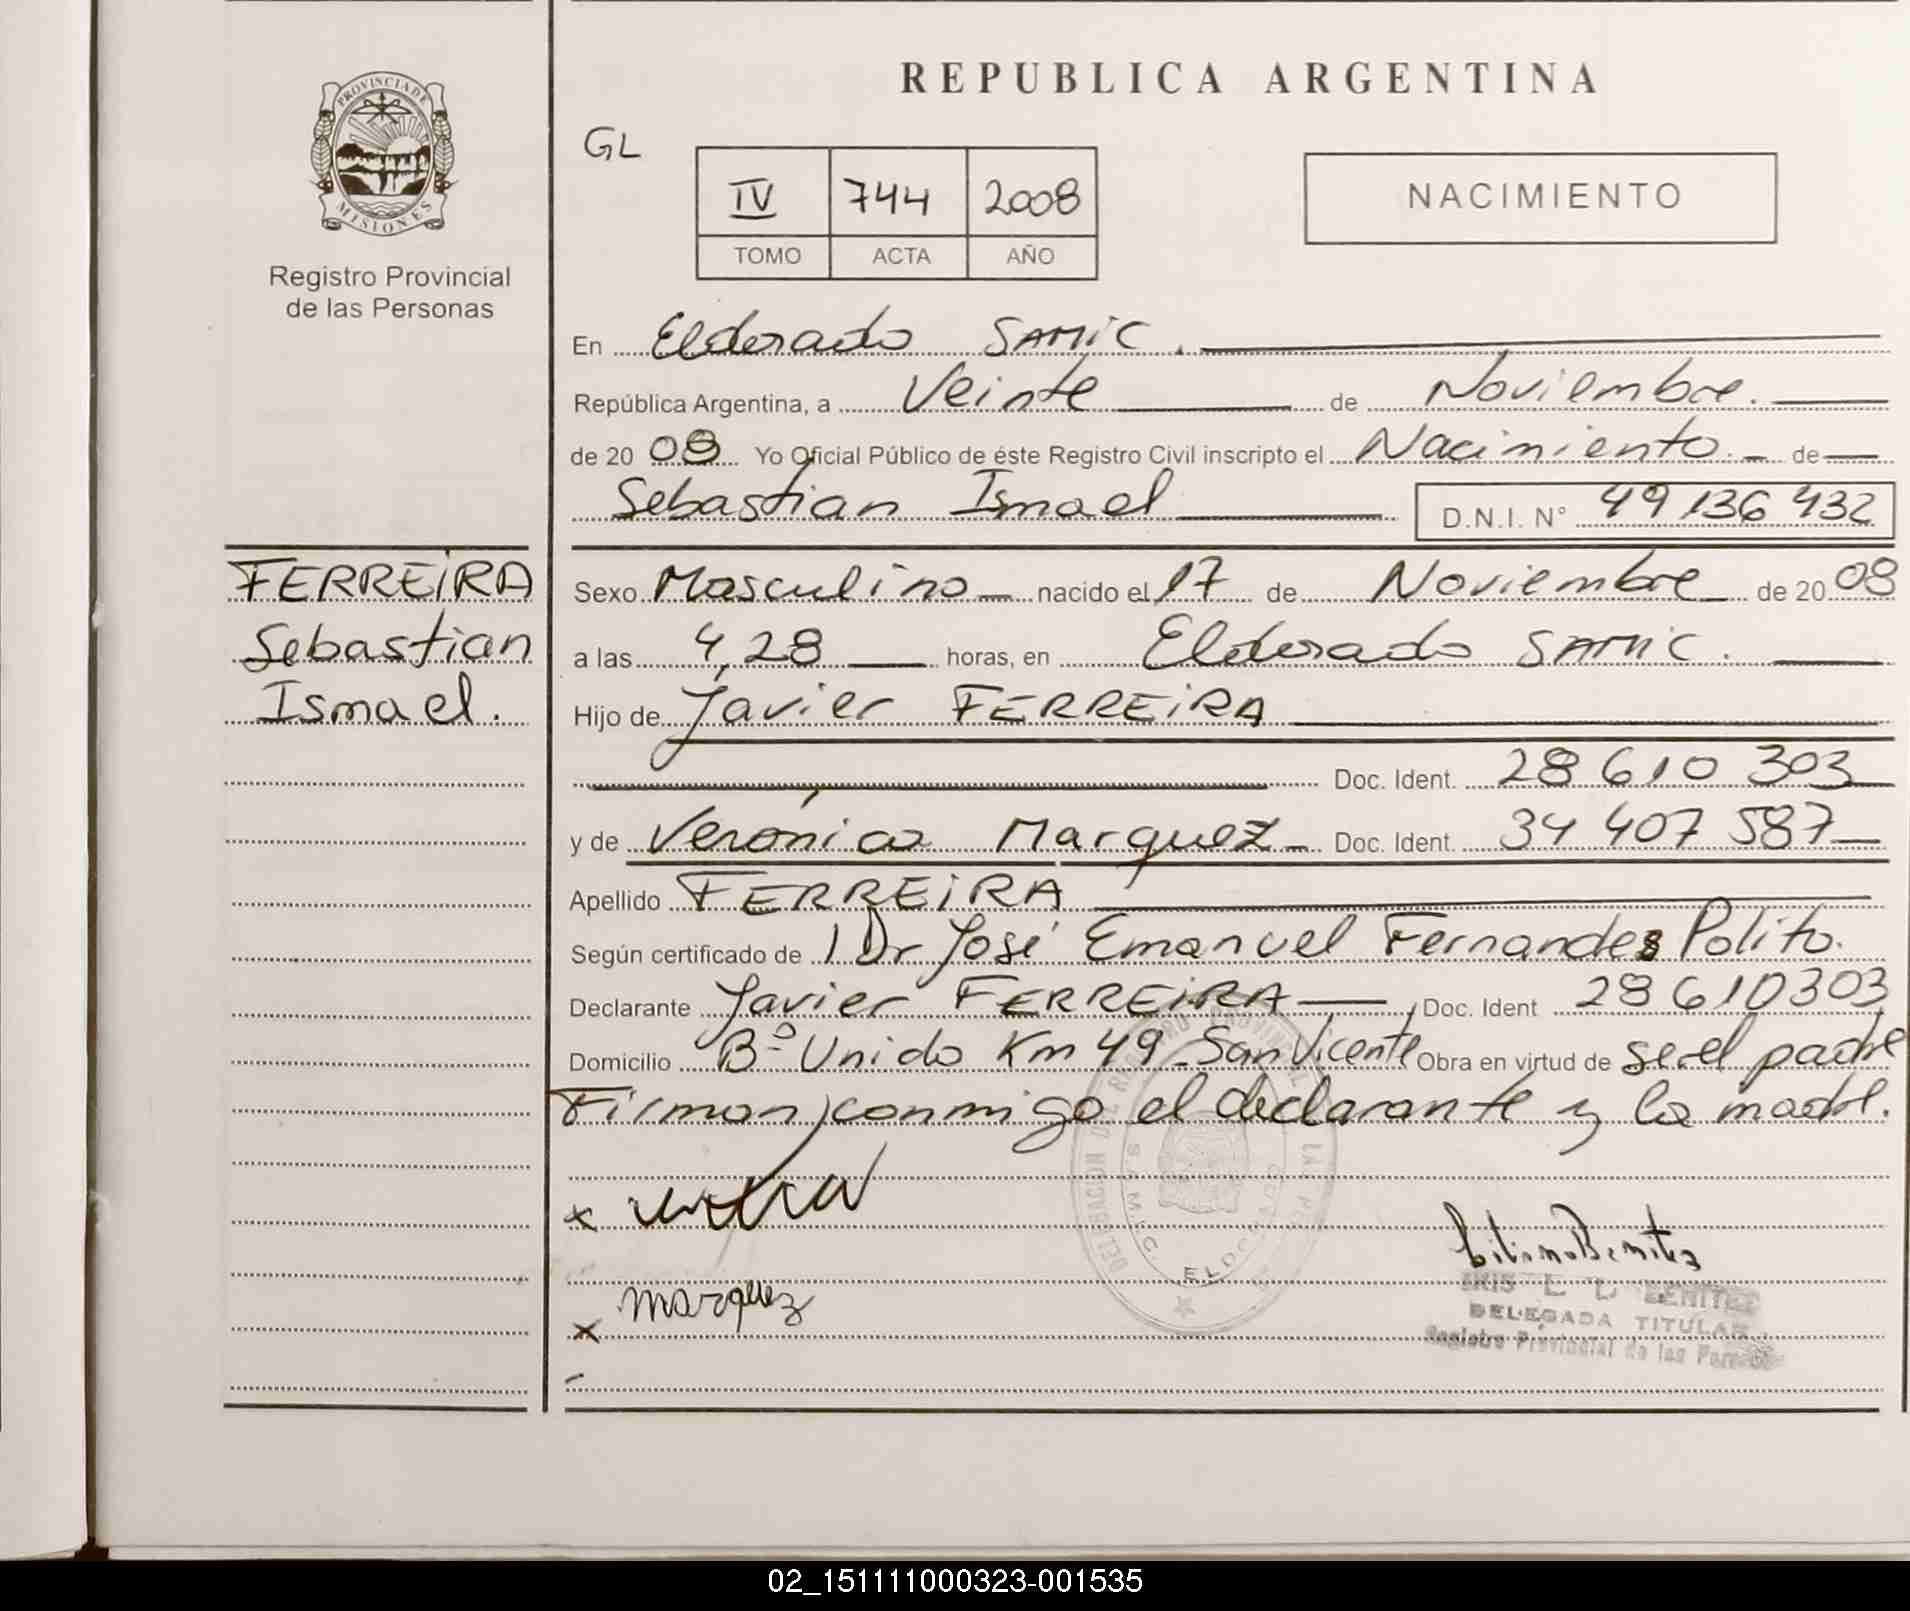 REPUBLICA ARGENTINA
PROVINCIA DE
MISIONES
Registro Provincial
de las Personas
GL
IV 744 2008
TOMO ACTA AÑO
NACIMIENTO
En Eldorado SAMIC.
República Argentina, a Veinte de Noviembre.
de 20 08 Yo Oficial Público de éste Registro Civil inscripto el Nacimiento. de
Sebastian Ismael D.N.I. N° 49 136 432
FERREIRA
Sebastian
Ismael.
Sexo Masculino nacido el 17 de Noviembre de 20 08
a las 4,28 horas, en Eldorado SAMIC.
Hijo de Javier FERREIRA
Doc. Ident. 28 610 303
y de Verónica Marquez Doc. Ident. 34 407 587
Apellido FERREIRA
Según certificado de 1 Dr José Emanuel Fernandes Polito.
Declarante Javier FERREIRA Doc. Ident 28 610303
Domicilio Bº Unido Km 49 - San Vicente Obra en virtud de ser el padre
Firman conmigo el declarante y la madre.
x
x Marquez
DELEGACION DEL REGISTRO PROVINCIAL
S.A.M.I.C. ELDORADO
Liliana Benitez
IRIS L. L. BENITEZ
DELEGADA TITULAR
Registro Provincial de las Personas
02_151111000323-001535